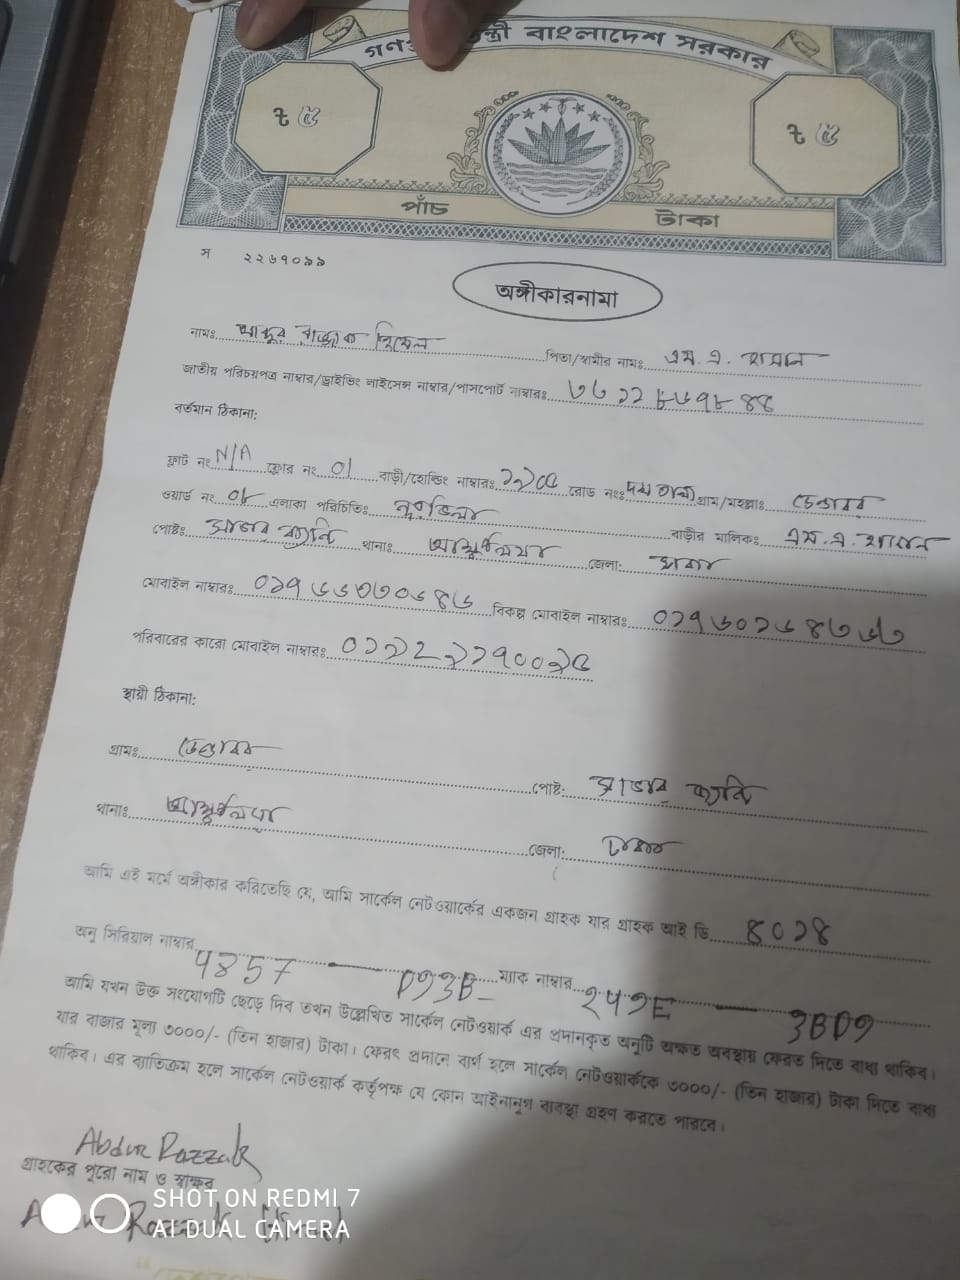 গণপ্রজাতন্ত্রী বাংলাদেশ সরকার
৳ ৫ ৳ ৫
পাঁচ টাকা
স ২২৬৭০৯৯
অঙ্গীকারনামা
নামঃ আব্দুর রাজ্জাক পিতা/স্বামীর নামঃ এম. এ. হামান
জাতীয় পরিচয়পত্র নাম্বার/ড্রাইভিং লাইসেন্স নাম্বার/পাসপোর্ট নাম্বারঃ
বর্তমান ঠিকানা:
ফ্লাট নং N/A ফ্লোর নং 01 বাড়ী/হোল্ডিং নাম্বারঃ রোড নংঃ গ্রাম/মহল্লাঃ ডেন্ডাবর
ওয়ার্ড নং ০৮ এলাকা পরিচিতিঃ বাড়ীর মালিকঃ এম. এ. হামান
পোষ্টঃ সাভার ক্যান্ট থানাঃ আশুলিয়া জেলা: ঢাকা
মোবাইল নাম্বারঃ বিকল্প মোবাইল নাম্বারঃ
পরিবারের কারো মোবাইল নাম্বারঃ
স্থায়ী ঠিকানা:
গ্রামঃ ডেন্ডাবর পোষ্ট: সাভার ক্যান্ট
থানাঃ আশুলিয়া জেলা: ঢাকা
আমি এই মর্মে অঙ্গীকার করিতেছি যে, আমি সার্কেল নেটওয়ার্কের একজন গ্রাহক যার গ্রাহক আই ডি ৪০১৪
অনু সিরিয়াল নাম্বার 4857 - D93B ম্যাক নাম্বার - 3BD9
আমি যখন উক্ত সংযোগটি ছেড়ে দিব তখন উল্লেখিত সার্কেল নেটওয়ার্ক এর প্রদানকৃত অনুটি অক্ষত অবস্থায় ফেরত দিতে বাধ্য থাকিব।
যার বাজার মূল্য ৩০০০/- (তিন হাজার) টাকা। ফেরৎ প্রদানে ব্যর্থ হলে সার্কেল নেটওয়ার্ককে ৩০০০/- (তিন হাজার) টাকা দিতে বাধ্য
থাকিব। এর ব্যতিক্রম হলে সার্কেল নেটওয়ার্ক কর্তৃপক্ষ যে কোন আইনানুগ ব্যবস্থা গ্রহণ করতে পারবে।
Abdur Razzak
গ্রাহকের পুরো নাম ও স্বাক্ষর
SHOT ON REDMI 7
AI DUAL CAMERA